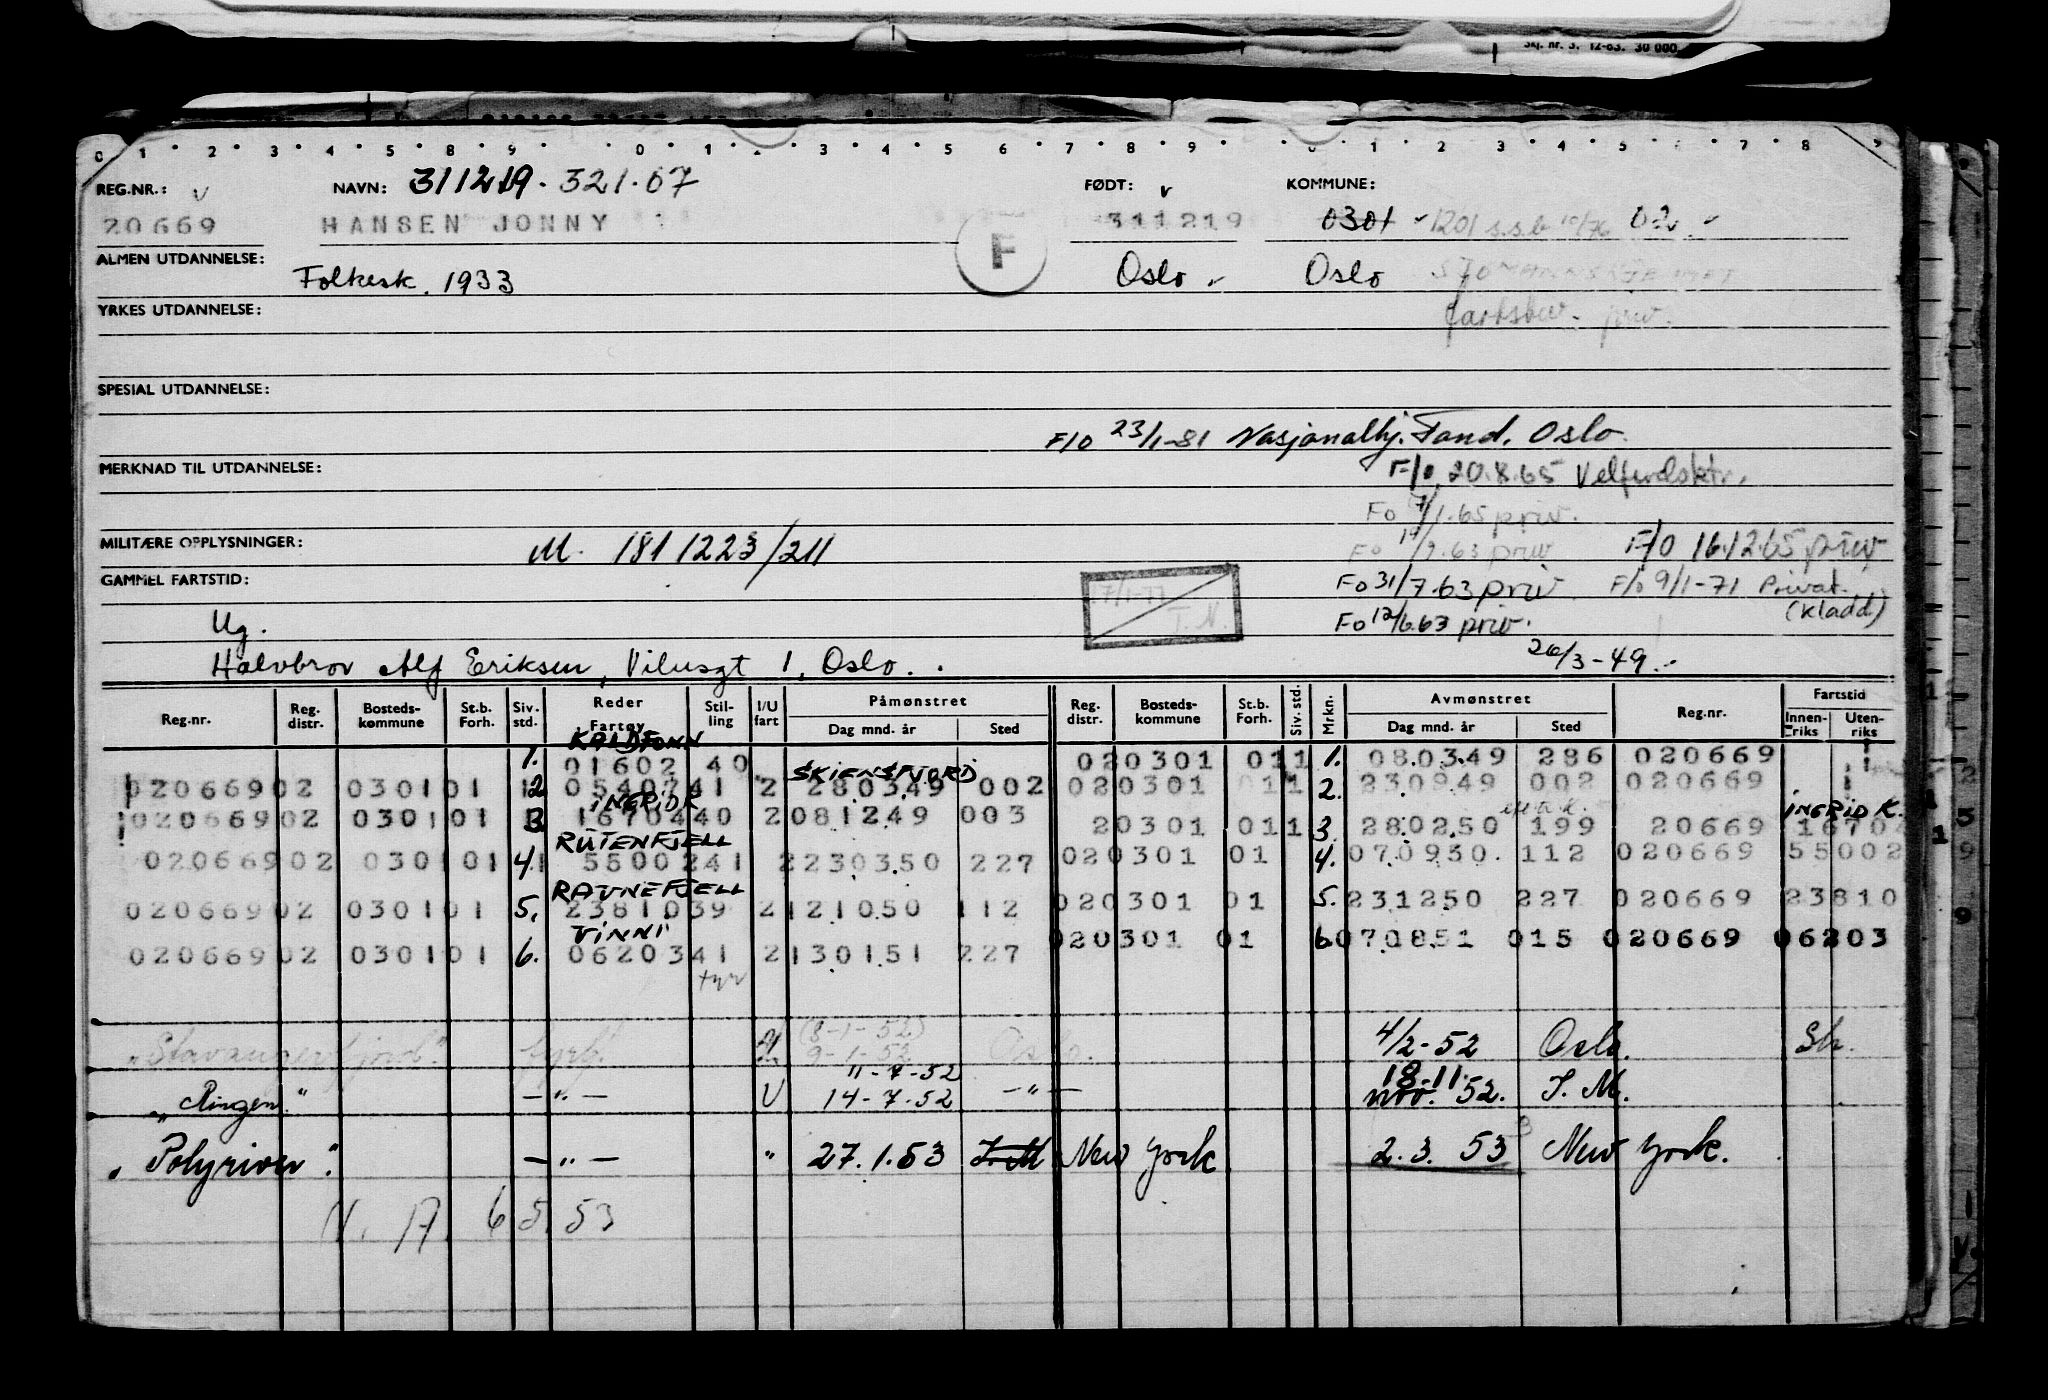 Skj. nr. 3. 12-63. 30 000.
0 1 2 3 4 5 8 9 0 1 2 3 4 5 6 7 8 9 0 1 2 3 4 5 6 7 8 9
REG.NR.: v NAVN: 311219. 321.07 FØDT: v KOMMUNE:
20669 HANSEN JONNY F 311219 0301 1201 s.s.b 10/76
ALMEN UTDANNELSE: Folkesk. 1933 Oslo Oslo
YRKES UTDANNELSE: fartsbev. priv.
SPESIAL UTDANNELSE:
F/O 23/1-81 Nasjonalhj. Fond. Oslo.
MERKNAD TIL UTDANNELSE: F/o 20.8.65 Velferdsktr.
Fo 7/1.65 priv.
MILITÆRE OPPLYSNINGER: M. 181 1223/211 Fo 19/9.63 priv F/O 16.12.65 priv
GAMMEL FARTSTID: 7/1-77 T.N. Fo 31/7.63 priv. F/o 9/1-71 Privat. (kladd)
Ug. Fo 12/6.63 priv.
Halvbror Alf Eriksen, Vilusgt 1, Oslo. 26/3-49
Reg.nr. Reg. distr. Bosteds-kommune St.b. Forh. Siv. std. Reder Fartøy Stil-ling I/U fart Påmønstret Dag mnd. år Sted Reg. distr. Bosteds-kommune St.b. Forh. Siv. std. Mrkn. Avmønstret Dag mnd. år Sted Reg.nr. Fartstid Innen-riks Uten-riks
KALDFONN
1. 01602 40 020301 011 1. 080349 286 020669
SKIENSFJORD
020669 02 0301 01 1 2 05407 41 2 280349 002 020301 011 2. 230949 002 020669
INGRID K
020669 02 0301 01 3 16704 40 2 081249 003 20301 011 3. 280250 199 20669 16704 INGRID K.
RUTENFJELL
020669 02 0301 01 4. 55002 41 2 230350 227 020301 01 4. 070950. 112 020669 55002
RAVNEFJELL
020669 02 0301 01 5. 23810 39 2 121050 112 020301 01 5. 231250 227 020669 23810
VINNI
020669 02 0301 01 6. 06203 41 2 130151 227 020301 01 6. 070851 015 020669 06203
fyr
"Stavangerfjord" fyrb. U (8-1-52) 9-1-52 Oslo. 4/2-52 Oslo. Sh.
11-7-52 18-11.
"Ringen" — " — U 14-7-52 — " — nov. 52. I. M.
"Polyriver". — " — " 27.1.53 I. M New York 2.3.53 New York.
N. A 6 5. 53